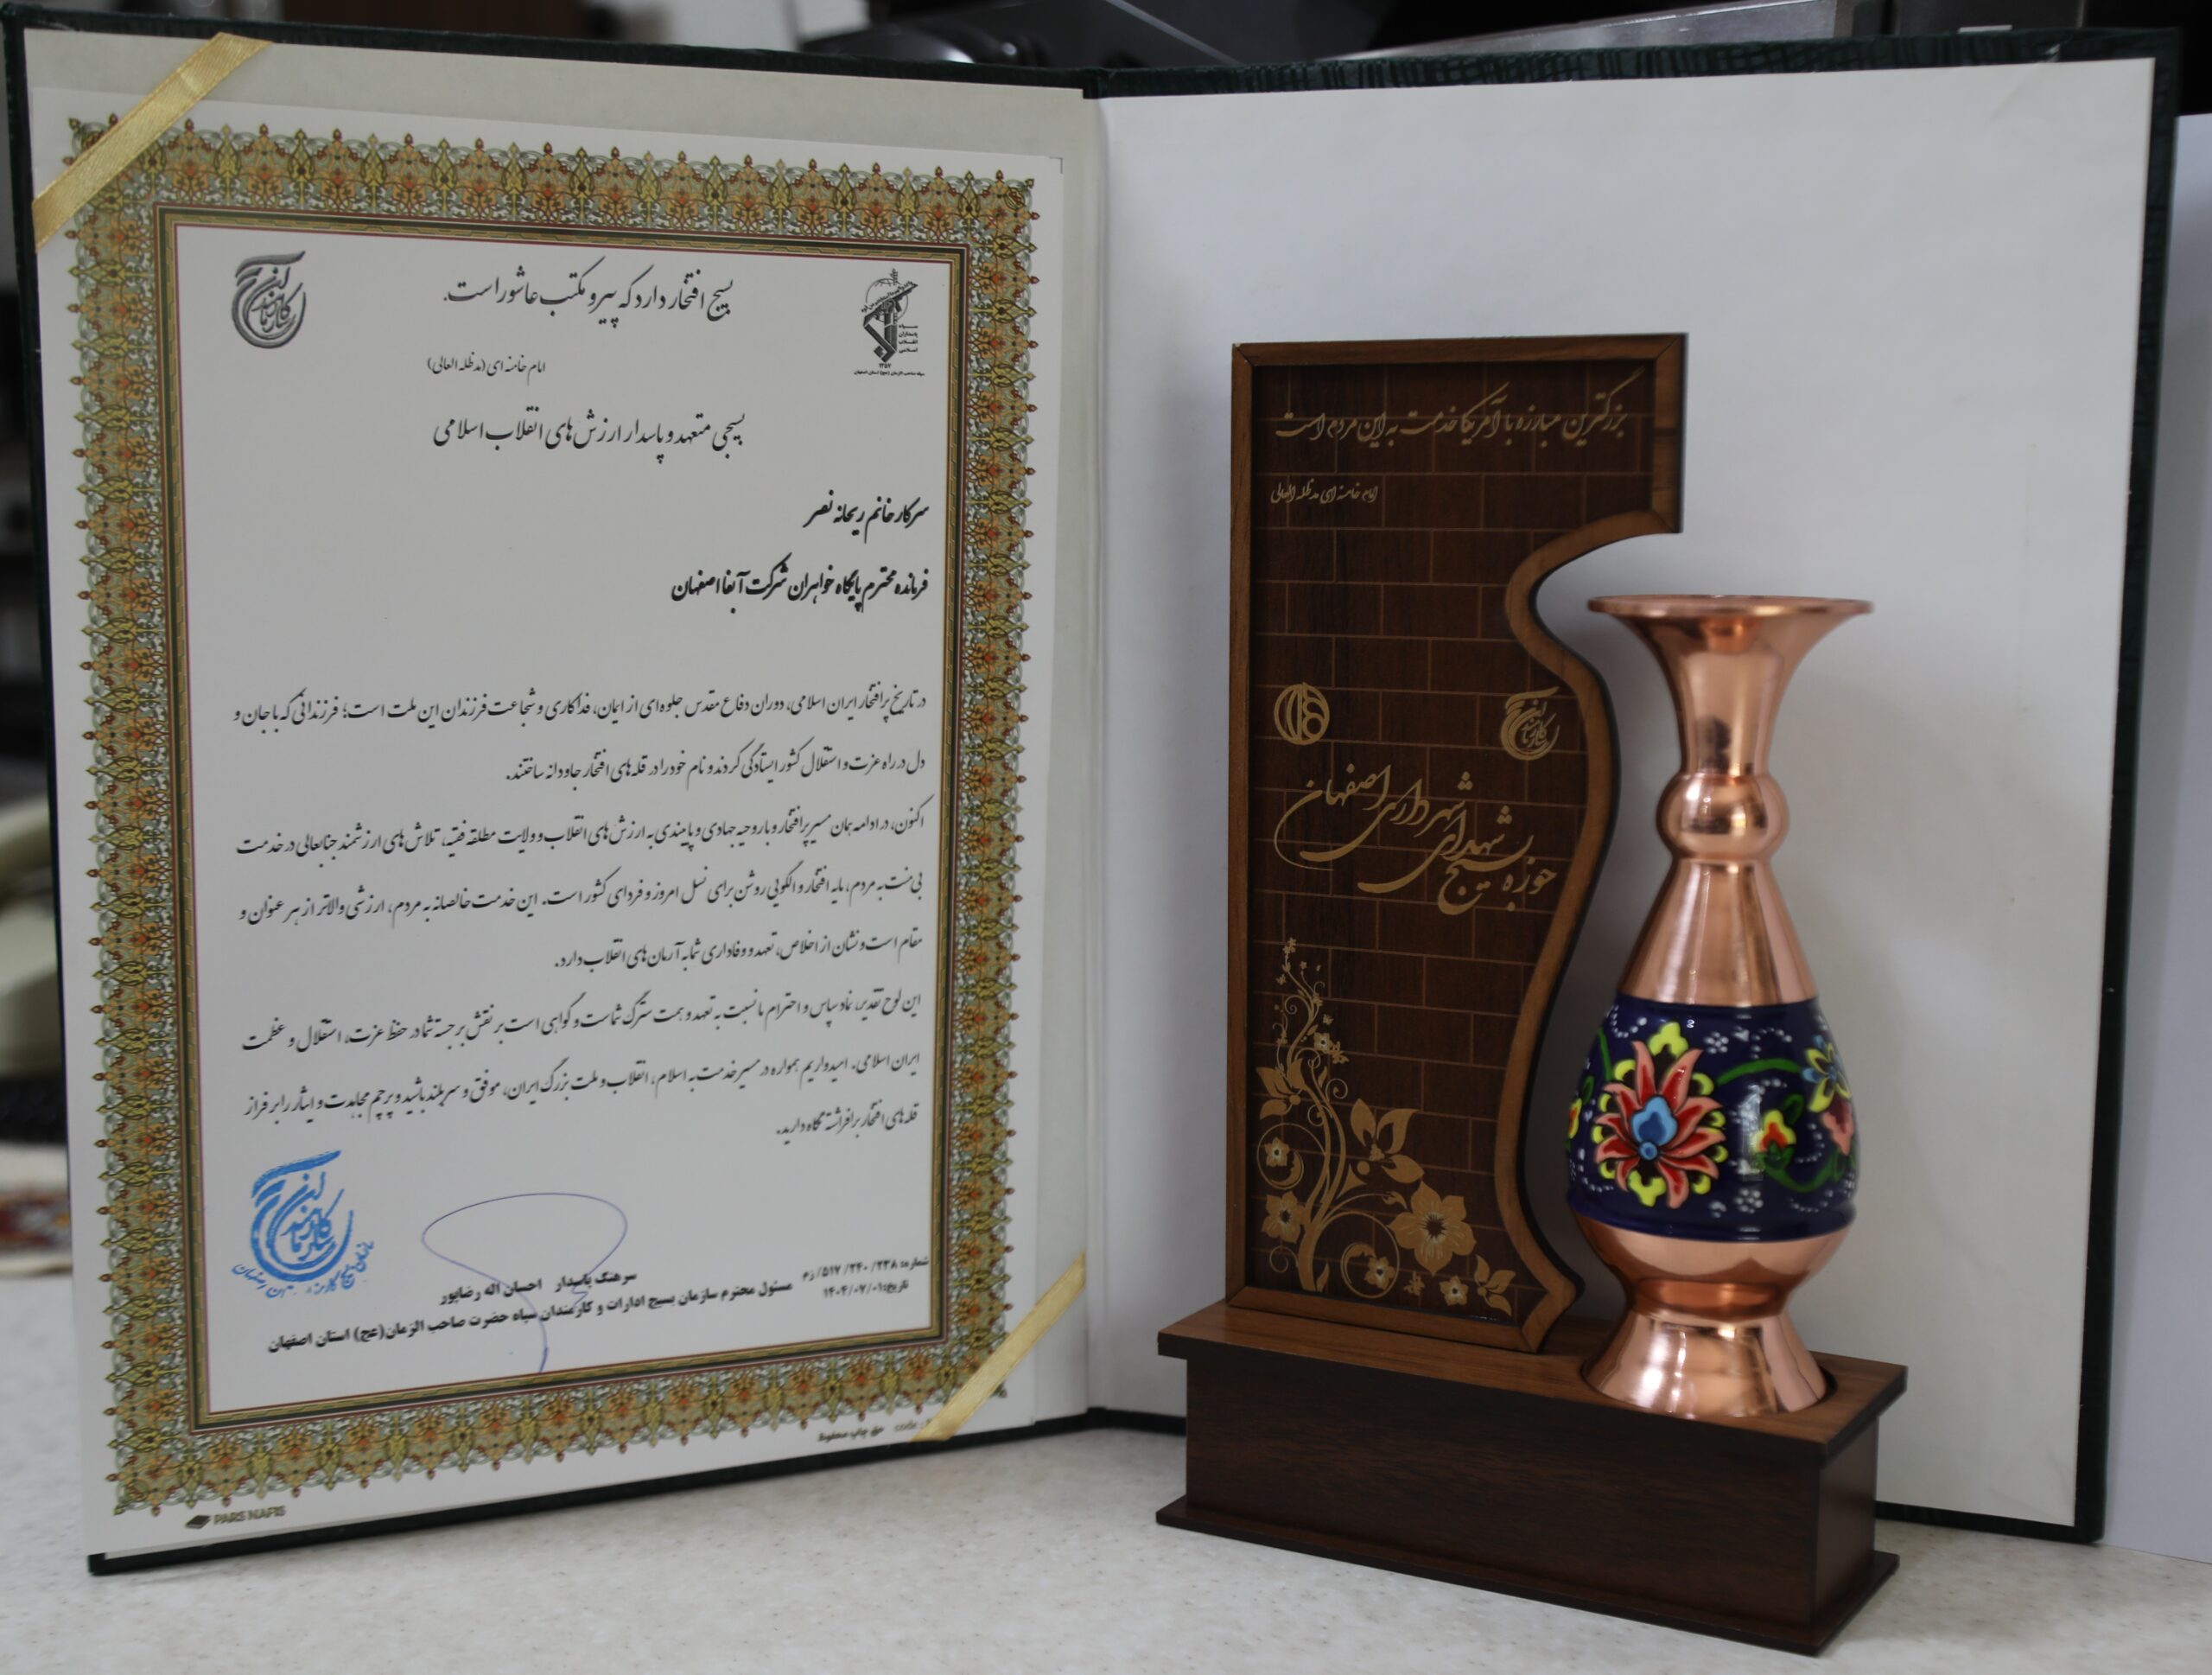 بسیج افتخار دارد که پیرو مکتب عاشوراست.
امام خامنه ای (مدظله العالی)
سپاه
پاسداران
انقلاب
اسلامی
بسیجی متعهد و پاسدار ارزش های انقلاب اسلامی
سرکار خانم ریحانه نصر
فرمانده محترم پایگاه خواهران شرکت آبفا اصفهان
در تاریخ پر افتخار ایران اسلامی، دوران دفاع مقدس جلوه ای از ایمان، فداکاری و شجاعت فرزندان این ملت است؛ فرزندانی که با جان و
دل در راه عزت و استقلال کشور ایستادگی کردند و نام خود را در قله های افتخار جاودانه ساختند.
اکنون، در ادامه همان مسیر پر افتخار و با روحیه جهادی و پایبندی به ارزش های انقلاب و ولایت مطلقه فقیه، تلاش های ارزشمند جنابعالی در خدمت
بی منت به مردم، مایه افتخار و الگویی روشن برای نسل امروز و فردای کشور است. این خدمت خالصانه به مردم، ارزشی والاتر از هر عنوان و
مقام است و نشان از اخلاص، تعهد و وفاداری شما به آرمان های انقلاب دارد.
این لوح تقدیر، نماد سپاس و احترام ما نسبت به تعهد و همت سترگ شماست و گواهی است بر نقش برجسته شما در حفظ عزت، استقلال و عظمت
ایران اسلامی. امیدواریم همواره در مسیر خدمت به اسلام، انقلاب و ملت بزرگ ایران، موفق و سربلند باشید و پرچم مجاهدت و ایثار را بر فراز
قله های افتخار برافراشته نگاه دارید.
شماره: ۳۳۸/ ۳۴۰/ ۵۱۷/ زم
تاریخ: ۱۴۰۴/۰۷/۰۱
سرهنگ پاسدار احسان اله رضاپور
مسئول محترم سازمان بسیج ادارات و کارمندان سپاه حضرت صاحب الزمان(عج) استان اصفهان
حق چاپ محفوظ
code
PARS NAFIS
بزرگترین مبارزه با آمریکا خدمت به این مردم است
امام خامنه ای مدظله العالی
حوزه بسیج شهدای شهرداری اصفهان